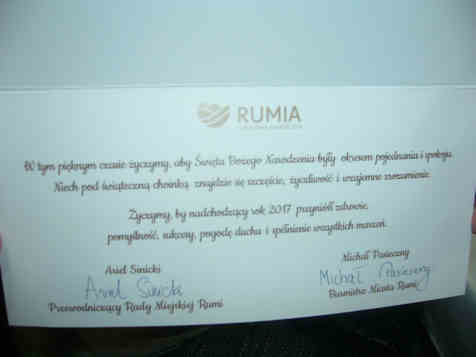 RUMIA
W tym pięknym czasie życzymy, aby Święta Bożego Narodzenia były okresem pojednania i spokoju.
Niech pod świąteczną choinką znajdzie się szczęście, życzliwość i wzajemne zrozumienie.
Życzymy, by nadchodzący rok 2017 przyniósł zdrowie,
pomyślność, sukcesy, pogodę ducha i spełnienie wszystkich marzeń.
Ariel Sinicki
Ariel Sinicki
Przewodniczący Rady Miejskiej Rumi
Michał Pasieczny
Michał Pasieczny
Burmistrz Miasta Rumi